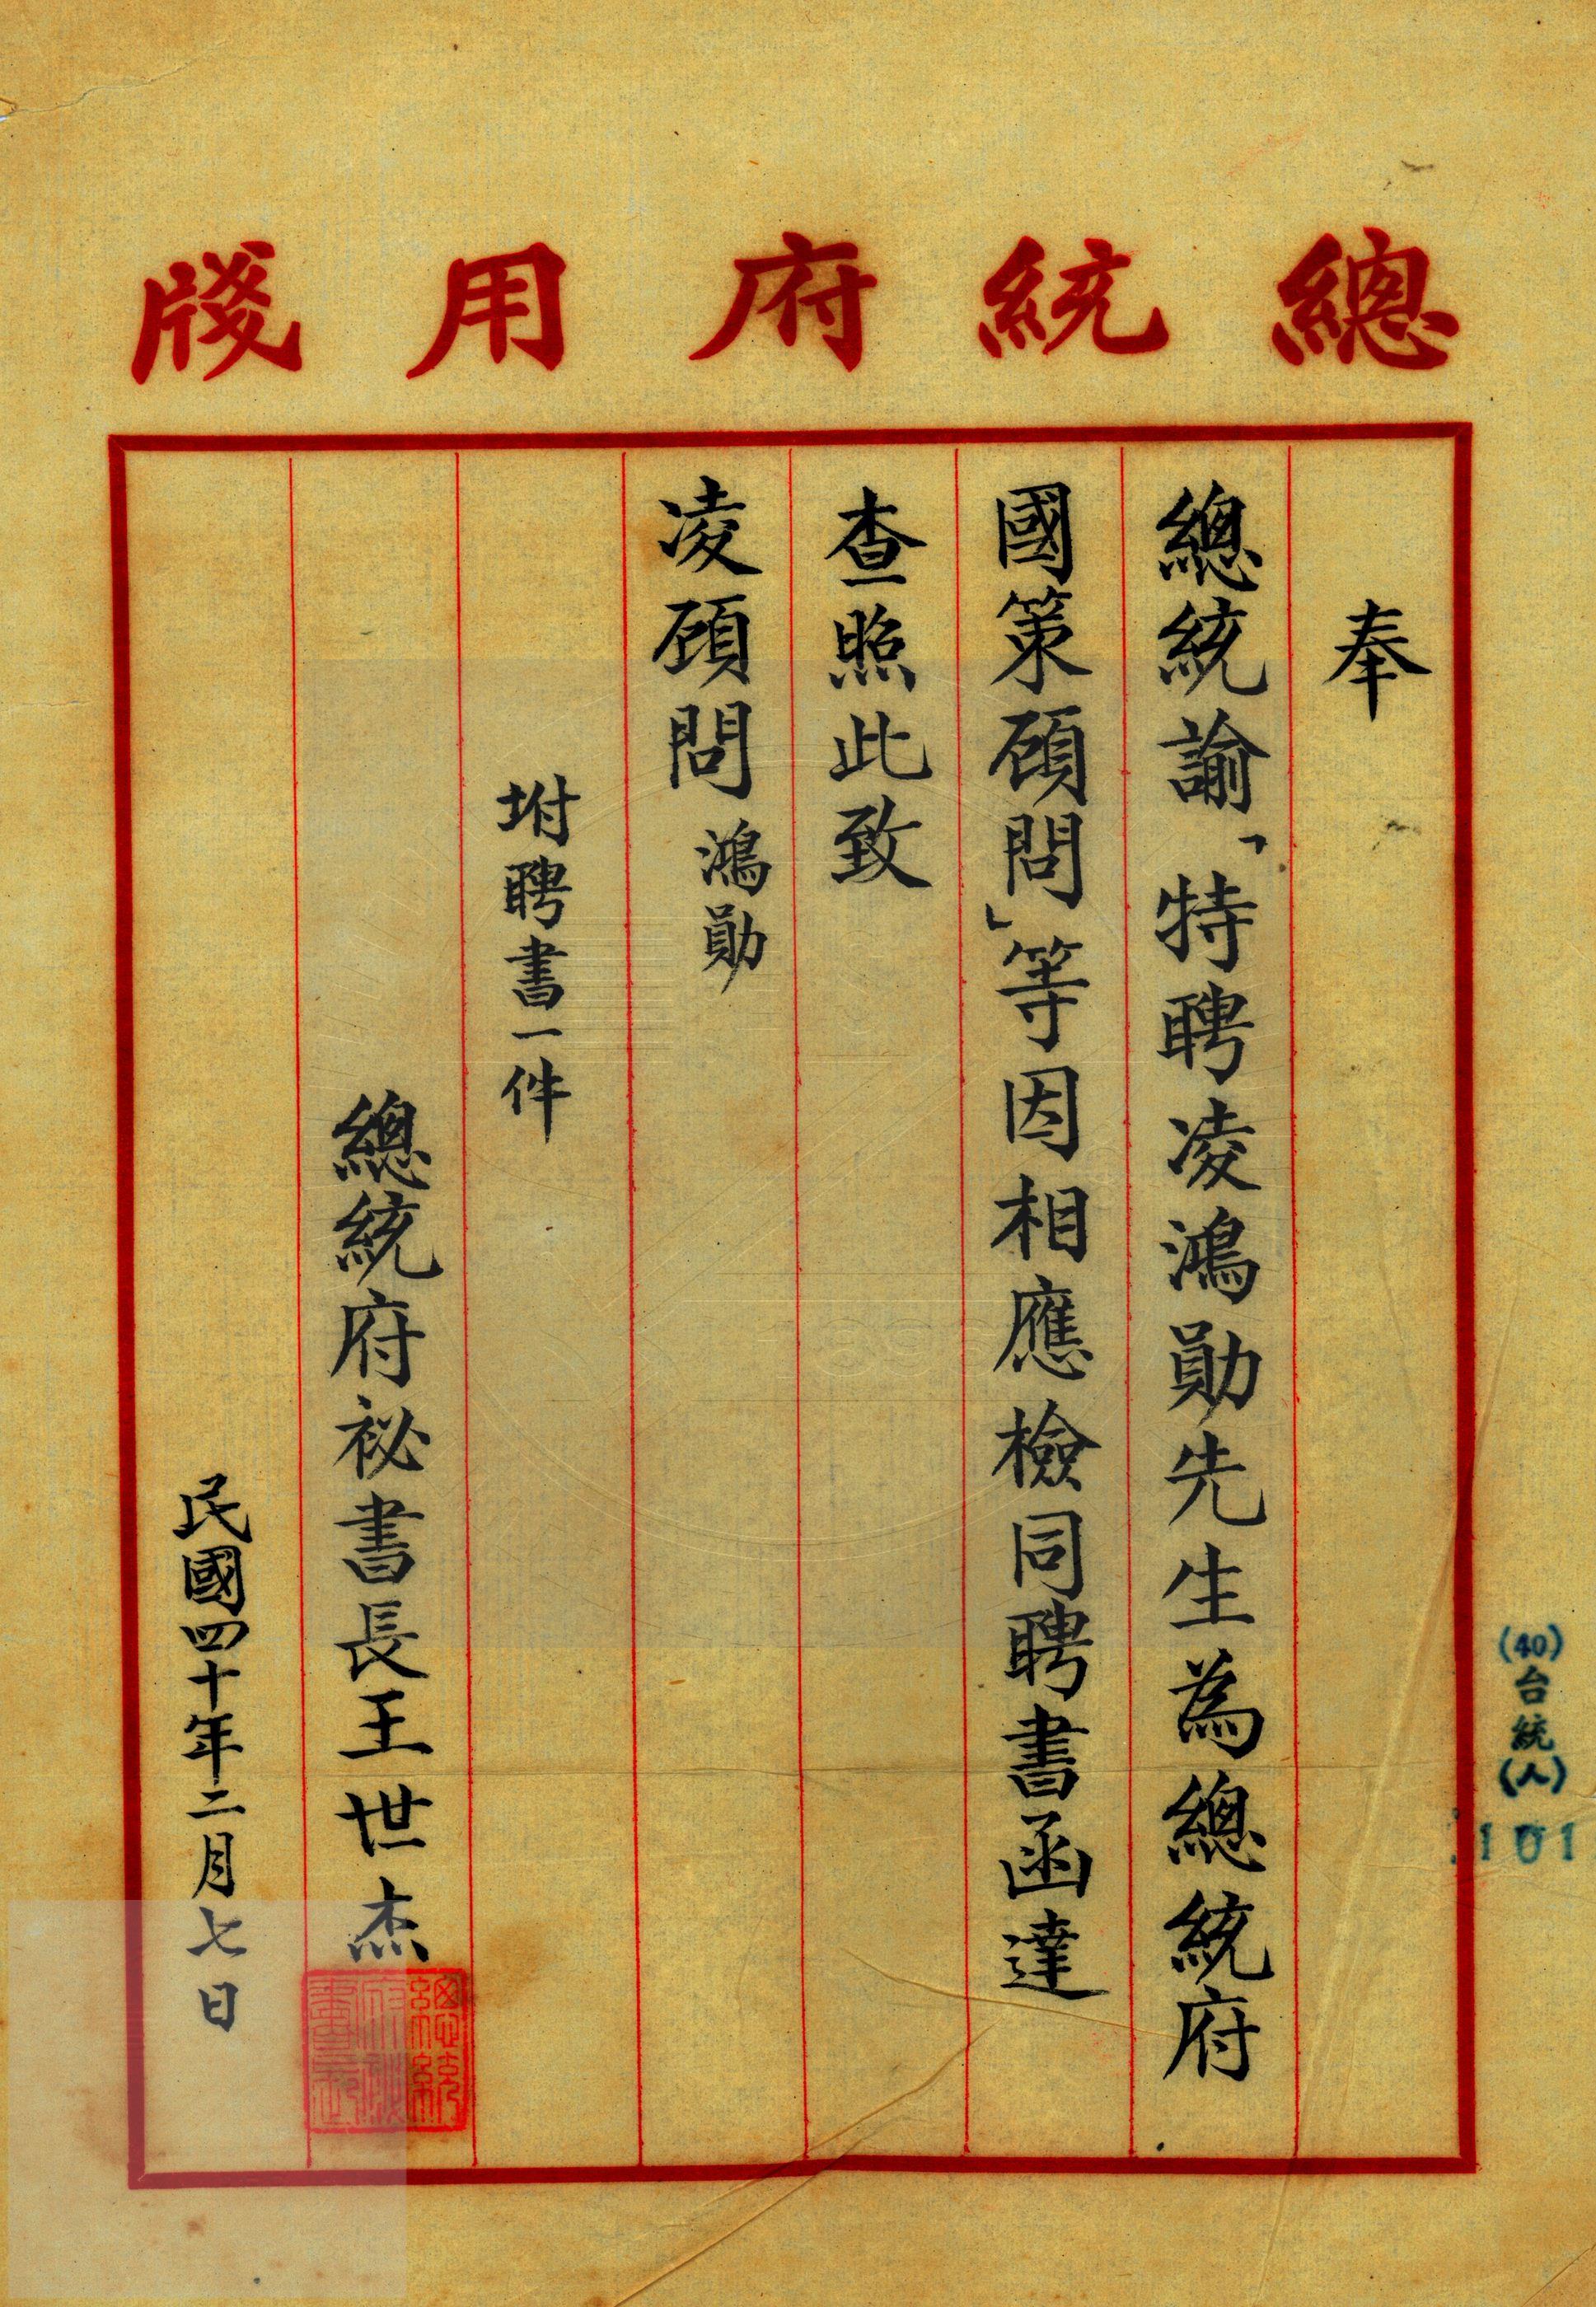 總統府用牋
奉
總統諭「特聘凌鴻勛先生為總統府
國策顧問」等因相應檢同聘書函達
查照此致
凌顧問 鴻勛
坿聘書一件
總統府祕書長王世杰
民國四十年二月七日
(40)台統(人)
101